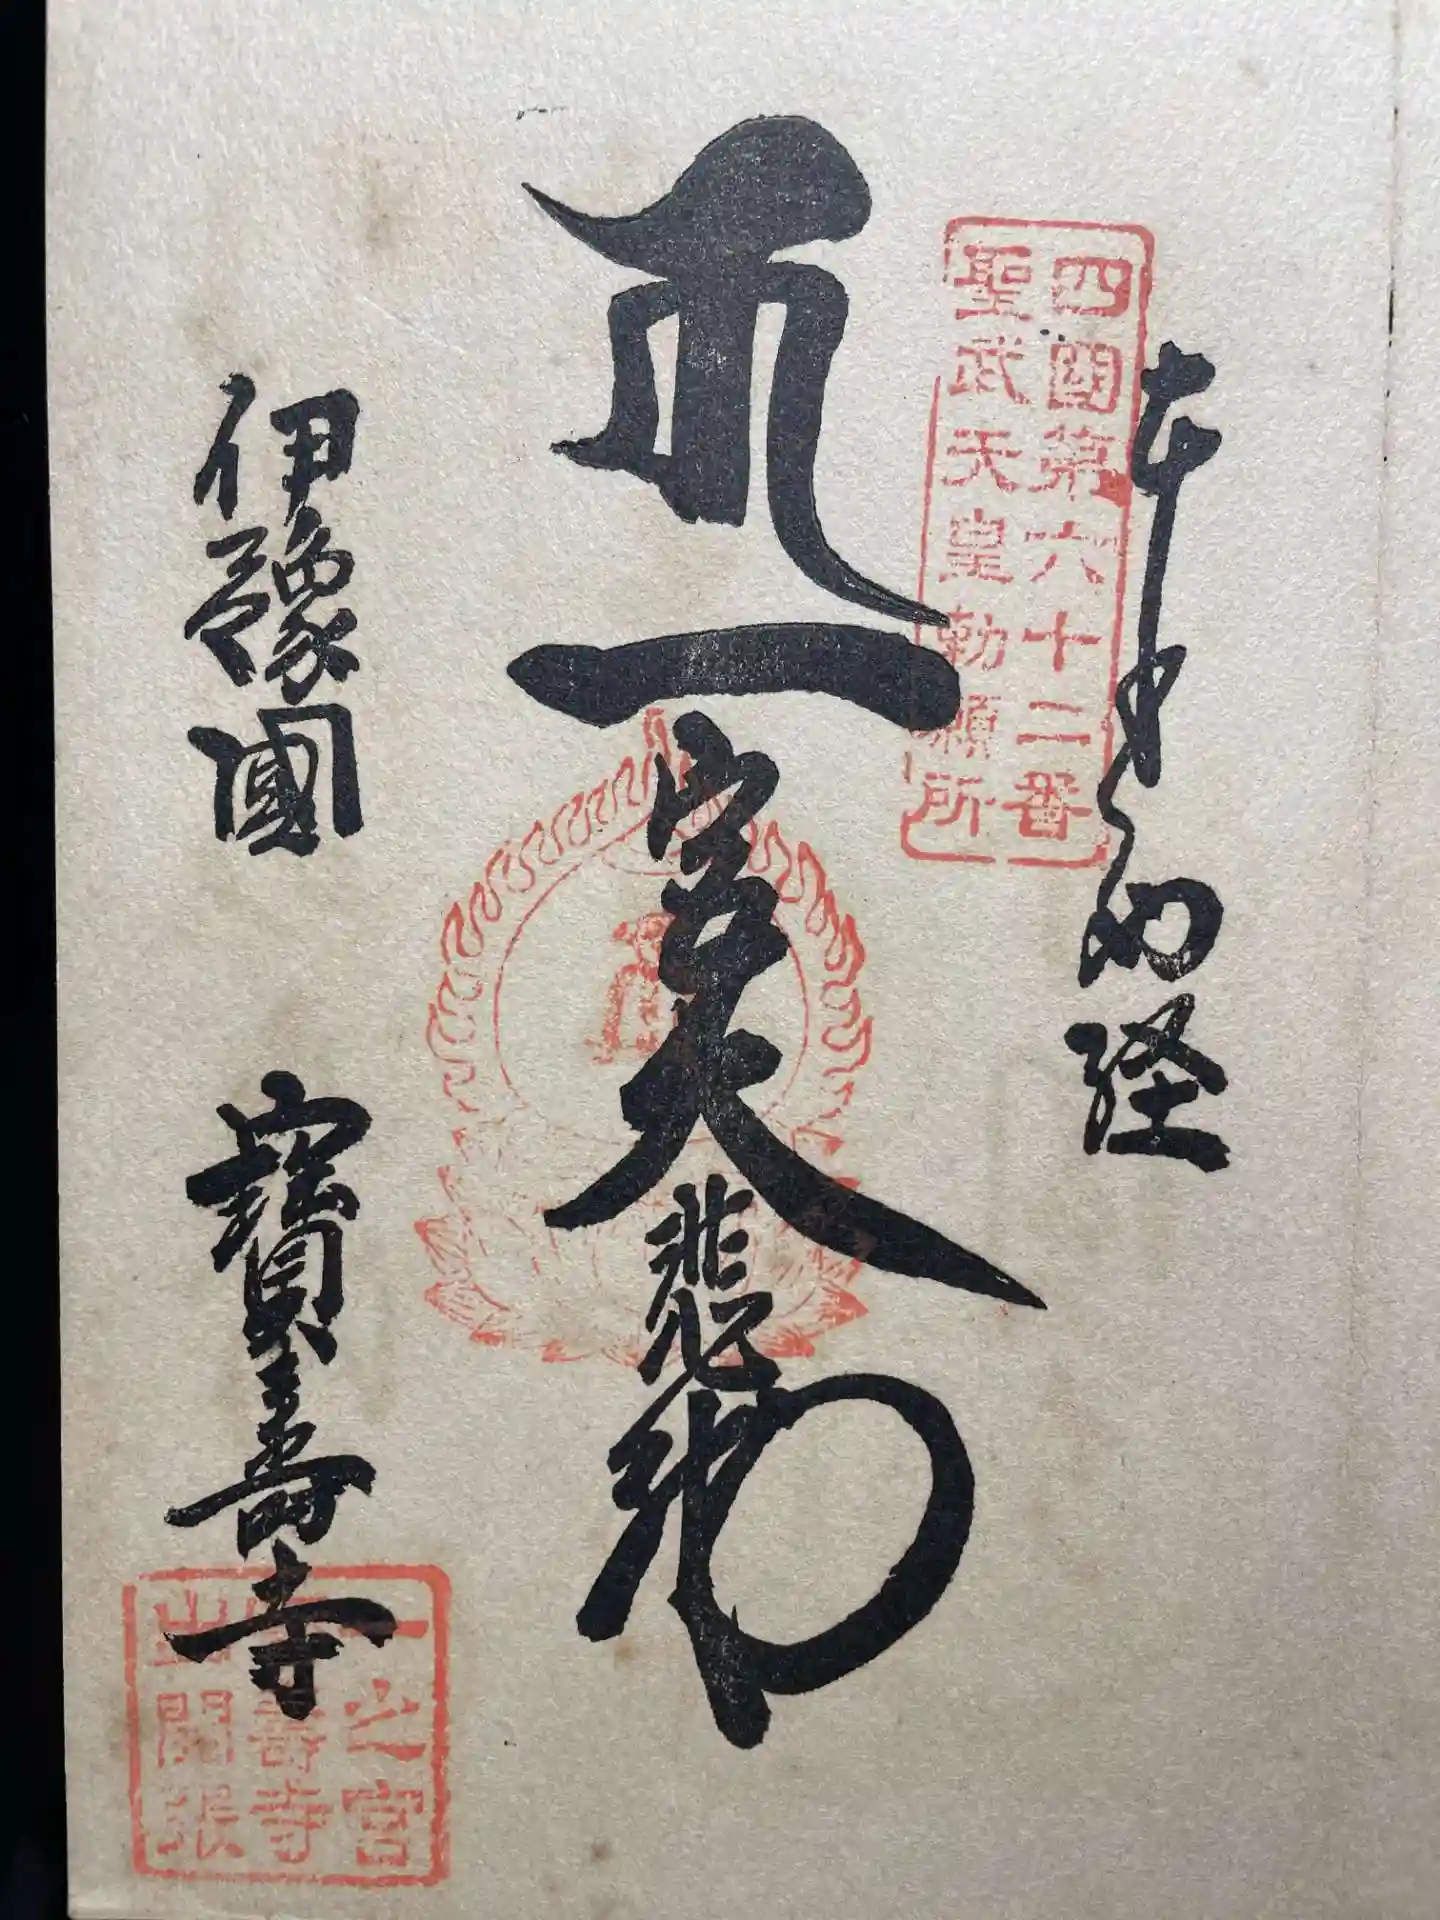 四國第六十二番
聖武天皇勅願所
納経
一宮大悲殿
伊豫國 寶壽寺
一之宮
寶壽寺